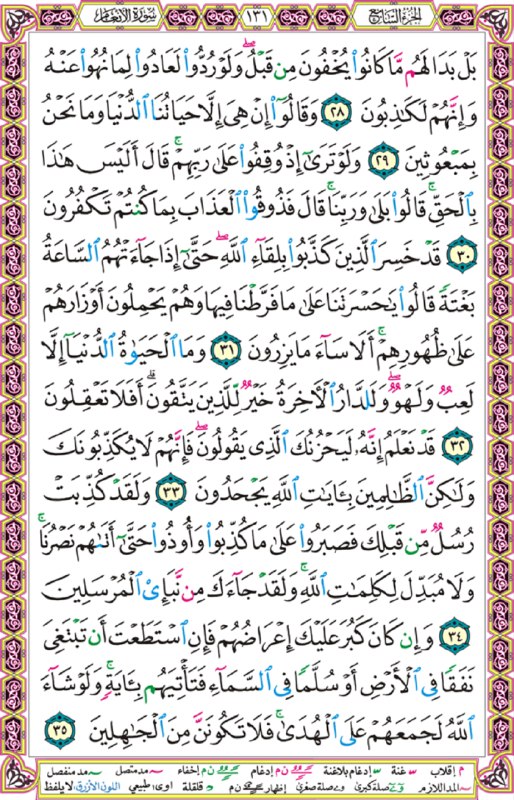 الجزء السابع ١٣١ سورة الأنعام
بَلْ بَدَا لَهُم مَّا كَانُوا۟ يُخْفُونَ مِن قَبْلُ ۖ وَلَوْ رُدُّوا۟ لَعَادُوا۟ لِمَا نُهُوا۟ عَنْهُ
وَإِنَّهُمْ لَكَـٰذِبُونَ ٢٨ وَقَالُوٓا۟ إِنْ هِىَ إِلَّا حَيَاتُنَا ٱلدُّنْيَا وَمَا نَحْنُ
بِمَبْعُوثِينَ ٢٩ وَلَوْ تَرَىٰٓ إِذْ وُقِفُوا۟ عَلَىٰ رَبِّهِمْ ۚ قَالَ أَلَيْسَ هَـٰذَا
بِٱلْحَقِّ ۚ قَالُوا۟ بَلَىٰ وَرَبِّنَا ۚ قَالَ فَذُوقُوا۟ ٱلْعَذَابَ بِمَا كُنتُمْ تَكْفُرُونَ
٣٠ قَدْ خَسِرَ ٱلَّذِينَ كَذَّبُوا۟ بِلِقَآءِ ٱللَّهِ ۖ حَتَّىٰٓ إِذَا جَآءَتْهُمُ ٱلسَّاعَةُ
بَغْتَةً قَالُوا۟ يَـٰحَسْرَتَنَا عَلَىٰ مَا فَرَّطْنَا فِيهَا وَهُمْ يَحْمِلُونَ أَوْزَارَهُمْ
عَلَىٰ ظُهُورِهِمْ ۚ أَلَا سَآءَ مَا يَزِرُونَ ٣١ وَمَا ٱلْحَيَوٰةُ ٱلدُّنْيَآ إِلَّا
لَعِبٌ وَلَهْوٌ ۖ وَلَلدَّارُ ٱلْـَٔاخِرَةُ خَيْرٌ لِّلَّذِينَ يَتَّقُونَ ۗ أَفَلَا تَعْقِلُونَ
٣٢ قَدْ نَعْلَمُ إِنَّهُۥ لَيَحْزُنُكَ ٱلَّذِى يَقُولُونَ ۖ فَإِنَّهُمْ لَا يُكَذِّبُونَكَ
وَلَـٰكِنَّ ٱلظَّـٰلِمِينَ بِـَٔايَـٰتِ ٱللَّهِ يَجْحَدُونَ ٣٣ وَلَقَدْ كُذِّبَتْ
رُسُلٌ مِّن قَبْلِكَ فَصَبَرُوا۟ عَلَىٰ مَا كُذِّبُوا۟ وَأُوذُوا۟ حَتَّىٰٓ أَتَىٰهُمْ نَصْرُنَا ۚ
وَلَا مُبَدِّلَ لِكَلِمَـٰتِ ٱللَّهِ ۚ وَلَقَدْ جَآءَكَ مِن نَّبَإِى۟ ٱلْمُرْسَلِينَ
٣٤ وَإِن كَانَ كَبُرَ عَلَيْكَ إِعْرَاضُهُمْ فَإِنِ ٱسْتَطَعْتَ أَن تَبْتَغِىَ
نَفَقًا فِى ٱلْأَرْضِ أَوْ سُلَّمًا فِى ٱلسَّمَآءِ فَتَأْتِيَهُم بِـَٔايَةٍ ۚ وَلَوْ شَآءَ
ٱللَّهُ لَجَمَعَهُمْ عَلَى ٱلْهُدَىٰ ۚ فَلَا تَكُونَنَّ مِنَ ٱلْجَـٰهِلِينَ ٣٥
م إقلاب غنة إدغام بلاغنة ن م إدغام ن م إخفاء مد متصل مد منفصل
المد اللازم صلة كبرى صلة صغرى إظهار ن م قلقلة اوى: طبيعي اللون الأزرق: لا يلفظ